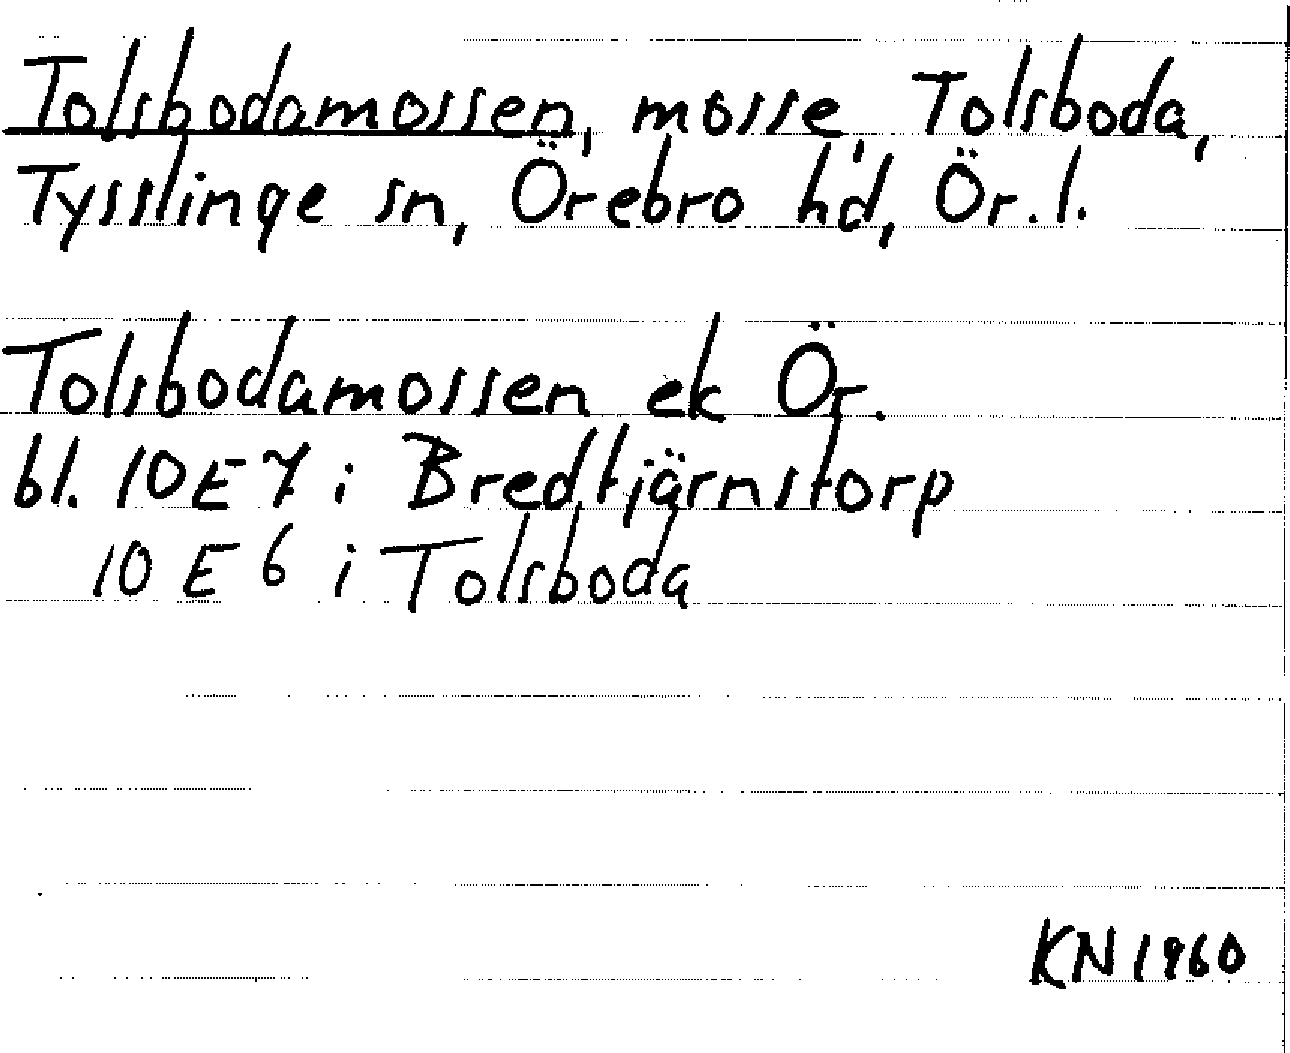 Tolsbodamossen, mosse, Tolsboda,
Tysslinge sn, Örebro hd, Ör. l.
Tolsbodamossen ek Ör.
bl. 10 E 7 i Bredtjärnstorp
10 E 6 i Tolsboda
KN 1960